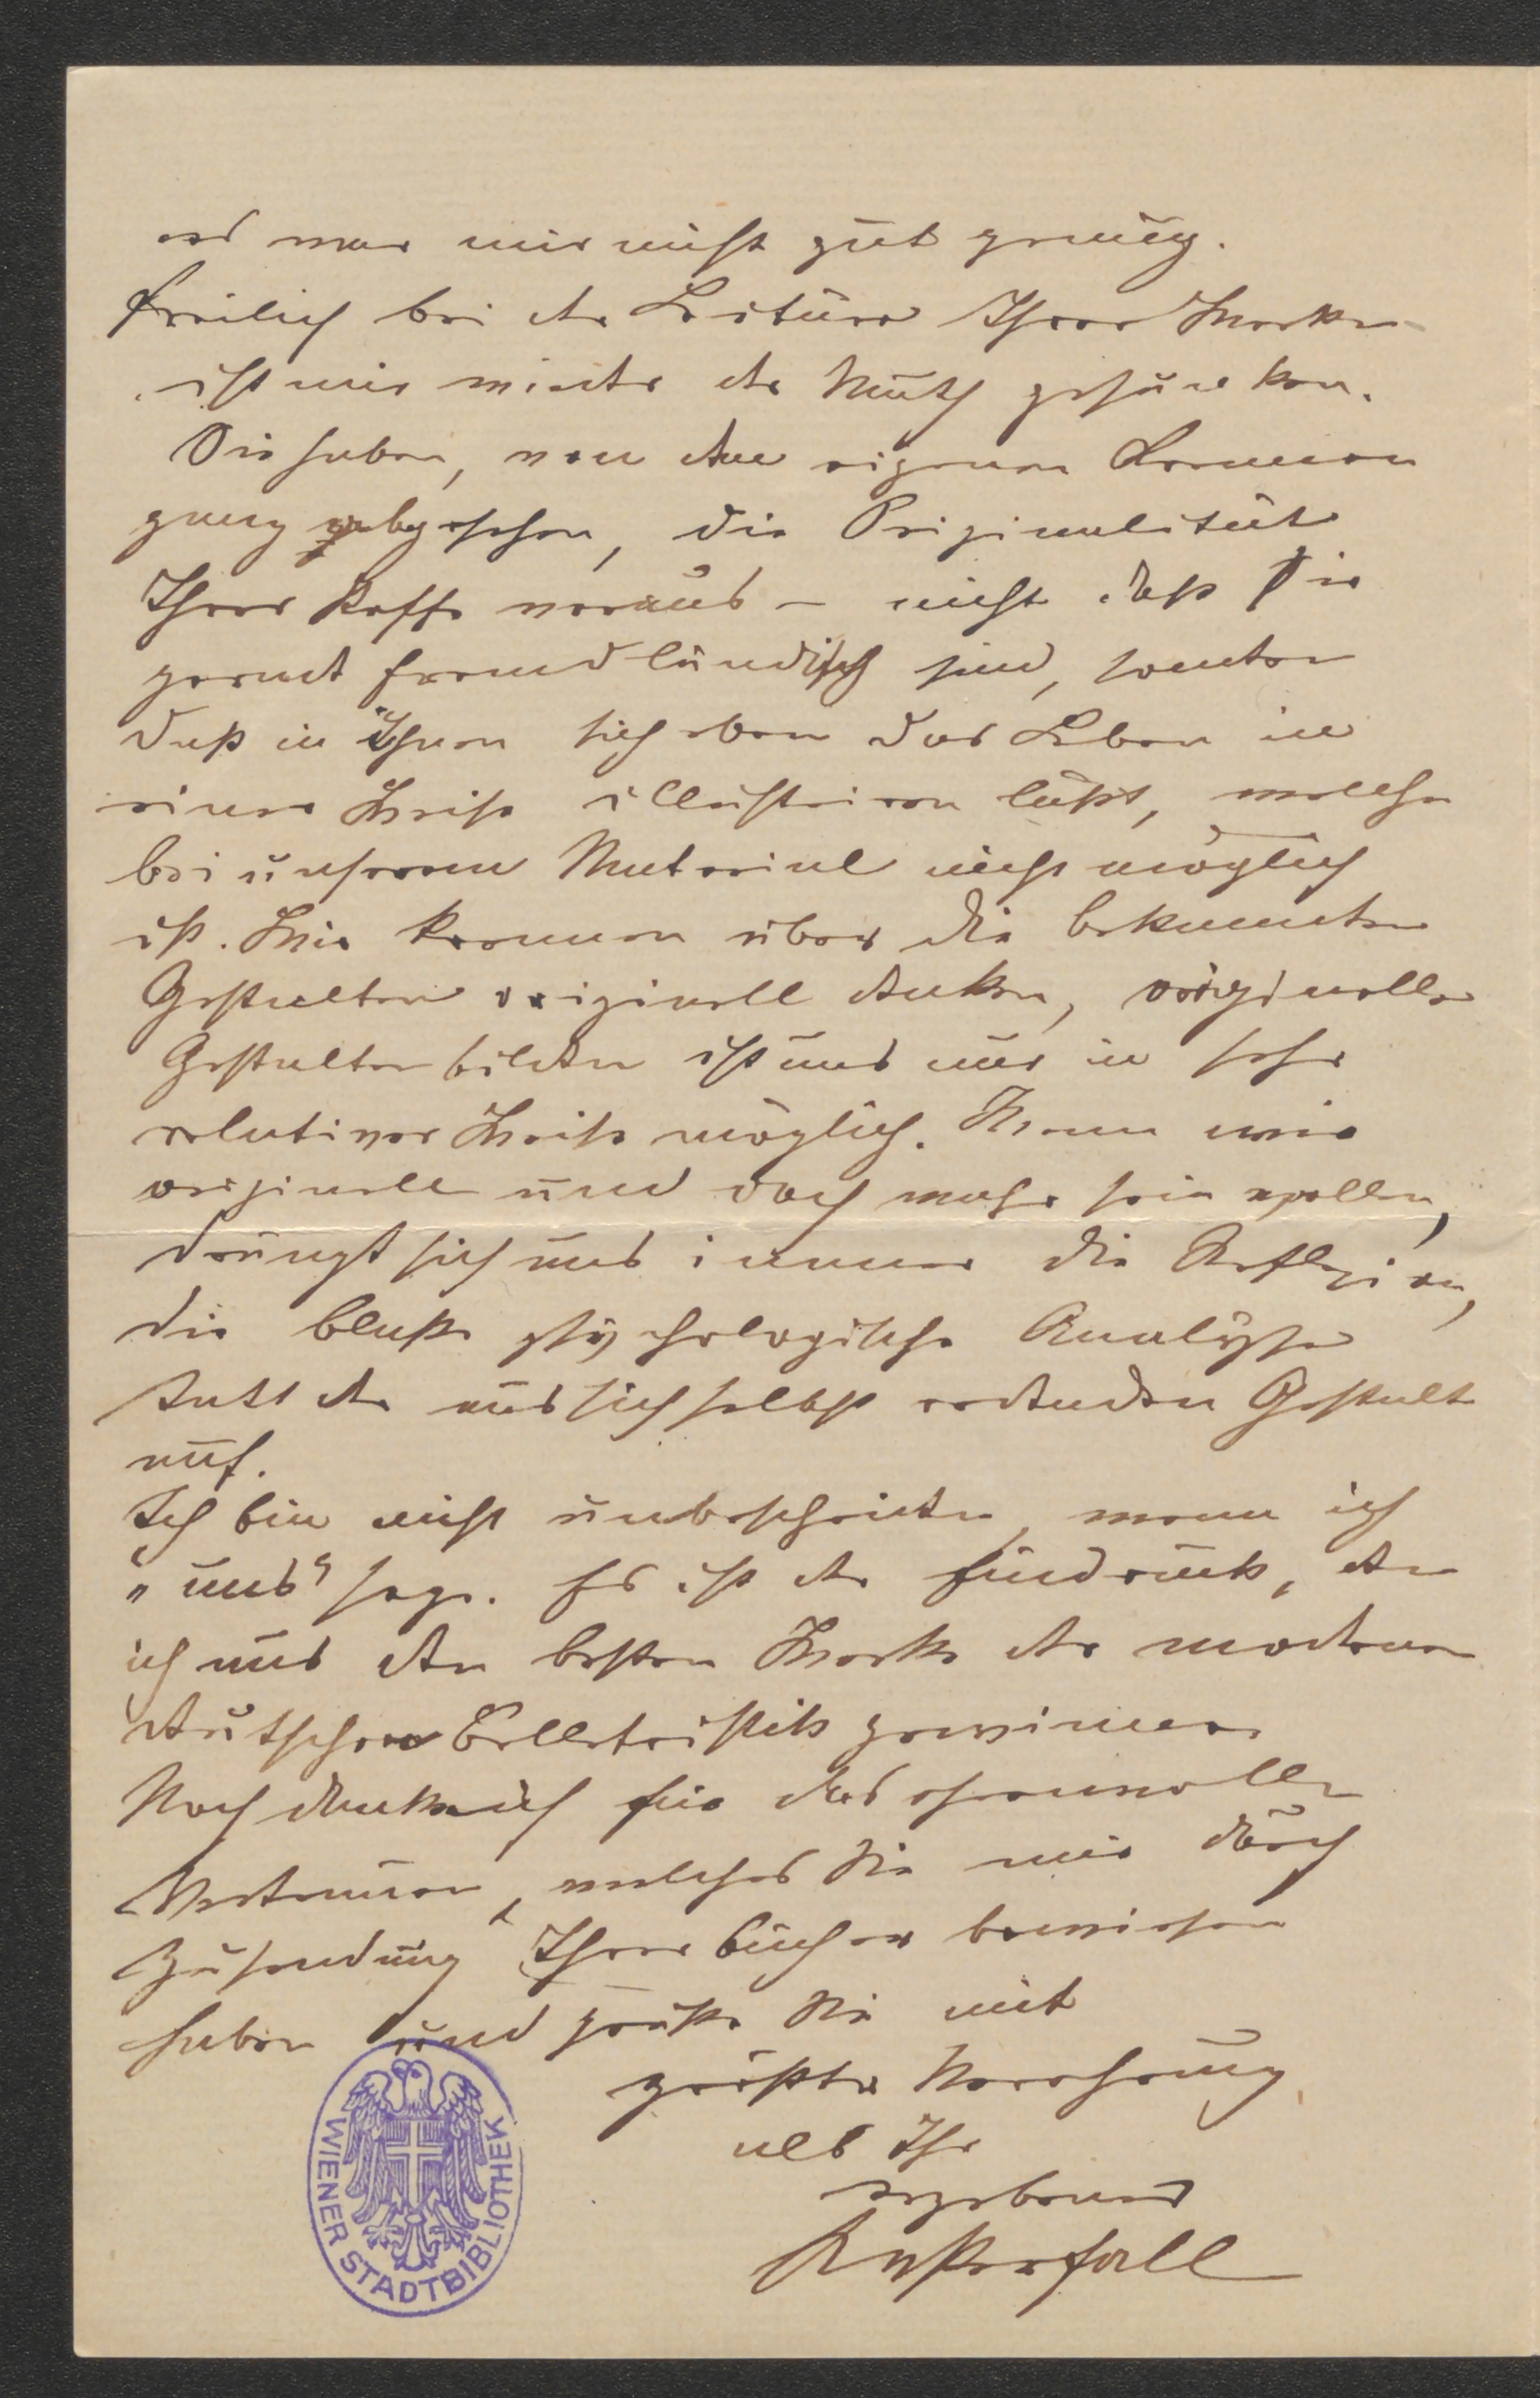 es war mir nicht gut genug.
Freilich bei der Lectüre Ihrer Werke
ist mir wieder der Muth gesunken.
Sie haben, von dem eigenen Können
ganz abgesehen, die Originalität
Ihrer Stoffe voraus – nicht daß sie
gerade fremdländisch sind, sondern
daß in Ihnen sich eben das Leben in
einer Weise illustriren läßt, welche
bei unserem Material nicht möglich
ist. Wir können über die bekannten
Gestalten originell denken, originelle
Gestalten bilden ist uns nur in sehr
relativer Weise möglich. Wenn wir
originell und doch wahr sein wollen,
drängt sich uns immer die Reflexion,
die bloße psychologische Analyse
statt der aus sich selbst redenden Gestalt
auf.
Ich bin nicht unbescheiden, wenn ich
„uns" sage. Es ist der Eindruck, den
ich aus den besten Werke der modernen
deutschen Belletristik gewinne.
Noch danke ich für das ehrenvolle
Vertrauen, welches Sie mir durch
Zusendung Ihrer Bücher bewiesen
haben und grüße Sie mit
größter Verehrung
als Ihr
ergebener
WIENER STADTBIBLIOTHEK